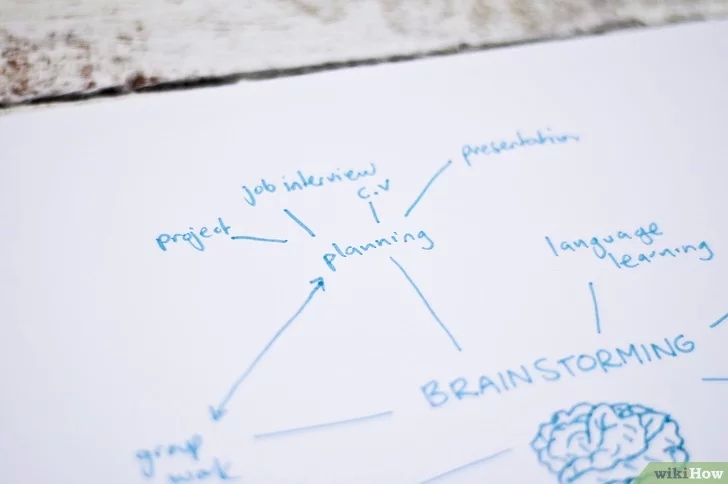 presentation
job interview
c.v
project
planning
language
learning
BRAINSTORMING
group
work
wikiHow